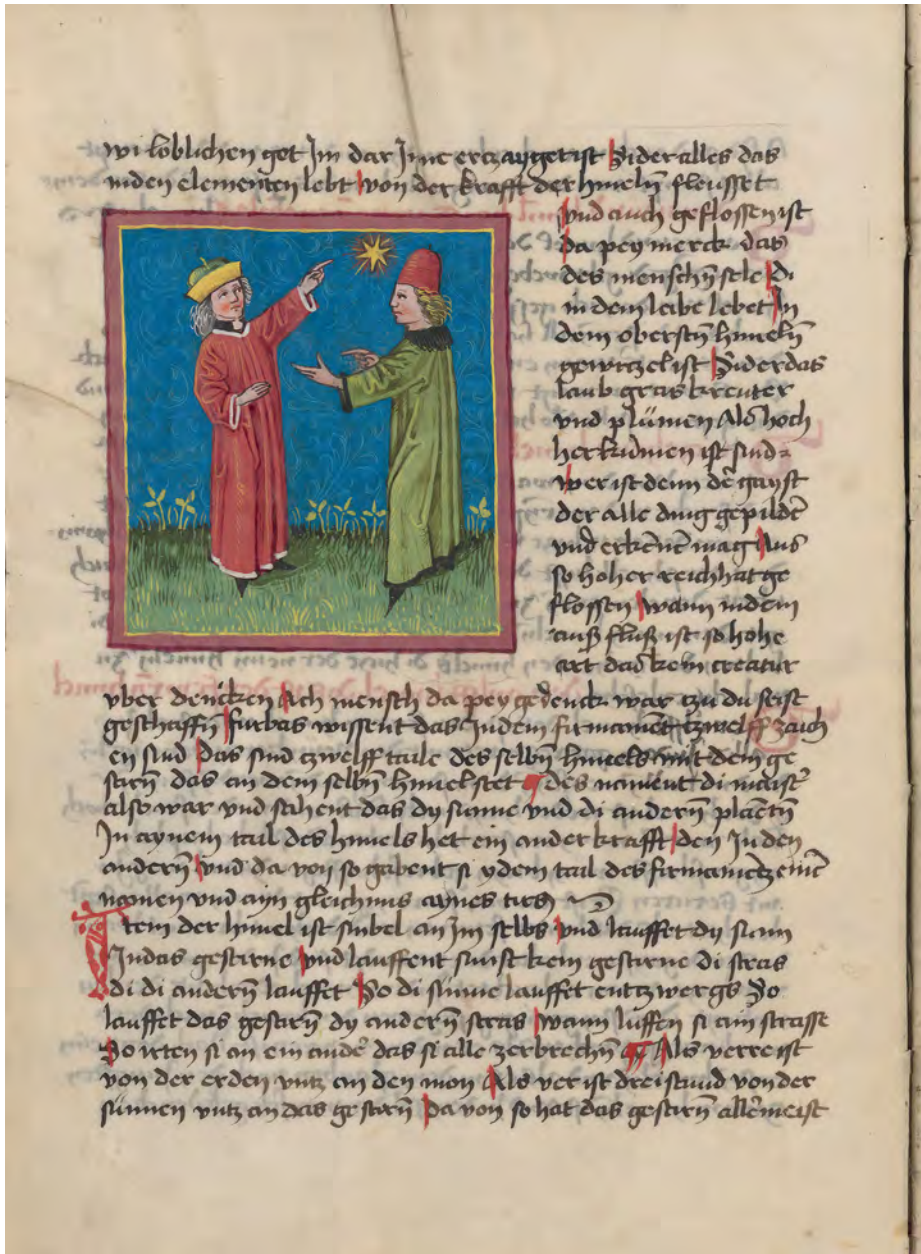 wi loblichen got Im dar Inne erczayget ist Sider alles das
inden elementen lebt von der krafft der himelñ fleusset
und auch geflossen ist
Da pey merck das
des menschñ sele Di
in dem leibe lebet In
dem oberstñ himelñ
gewrczel ist Sider das
laub gras kreuter
vnd plümen Als hoch
her kumen ist sind
wer ist denn de᷑ gayst
der alle ding gepilde᷑
vnd erkene᷑ mag Aus
so hoher reich hat ge
flossen wann indem
auß fluß ist so hohe
art das kein creatur
vber dencken Ach mensch da pey gedenck war czu du seist
geschaffñ furbas wissent das Indem firmament czwelff zaich
en sind Das sind czwelff taile des selbñ himels mit dem ge
starñ das an dem selbñ himel stet des nament di maist᷑
also war vnd sahent das dy sunne vnd di anderñ planetñ
In aynem tail des himels het ein ander krafft den In den
anderñ vnd da von so gabent si ydem tail des firmamentz
namen vnd ayn gleichnus aynes tirs
Item der himel ist sinbel an Im selbs vnd lauffet dy sunn
Indas gestirne vnd lauffent sunst kein gestirne di stras
di di anderñ lauffet So di sünne lauffet entzwergs So
lauffet das gestirñ dy anderñ stras wann luffen si ain strasse
So irten si an ein ande᷑ das si alle zerbrechñ Als verre ist
von der erden vntz an den mon Als ver ist drei stund von der
sünnen vntz an das gestirñ Da von so hat das gestirñ alle᷑meist